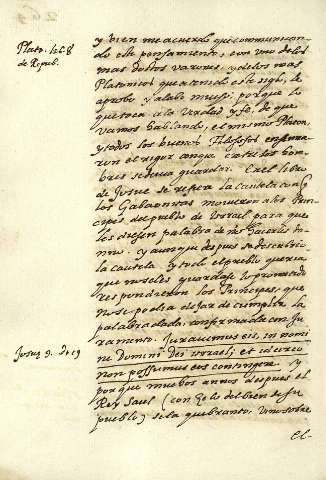 Plato. 1268
de Repub.
y bien me acuerdo que communican
do este pensamiento, con uno de los
mas doctos varones, y de los mas
Platonicos que a tenido este siglo, le
aprobo y alabo mucho, porque lo
que mira a la verdad y fe, de que
vamos hablando, el mismo Platon,
y todos los buenos Filosofos enseña
ron el rigor conque entre los hom
bres se devia guardar. En el libro
de Josue se refiere la cautela conq
los Gabaonitas movieron a los Prin
cipes del pueblo de Israel para que
les diesen palabra de no hacerles da
nno. y aunque despues se descubrio
la cautela y todo el pueblo queria
que no se les guardase lo prometido
respondieron los Principes, que
no se podia dejar de cumplir la
palabra dada, confirmada con ju
ramento. Juravimus eis, in nomi
ne Domini Dei israel; et idcirco
non possumus eos contingere y
porque muchos annos despues el
Rey Saul (con zelo del bien de su
pueblo) se la quebranto. vino sobre
el-
Josue 9. v. 19